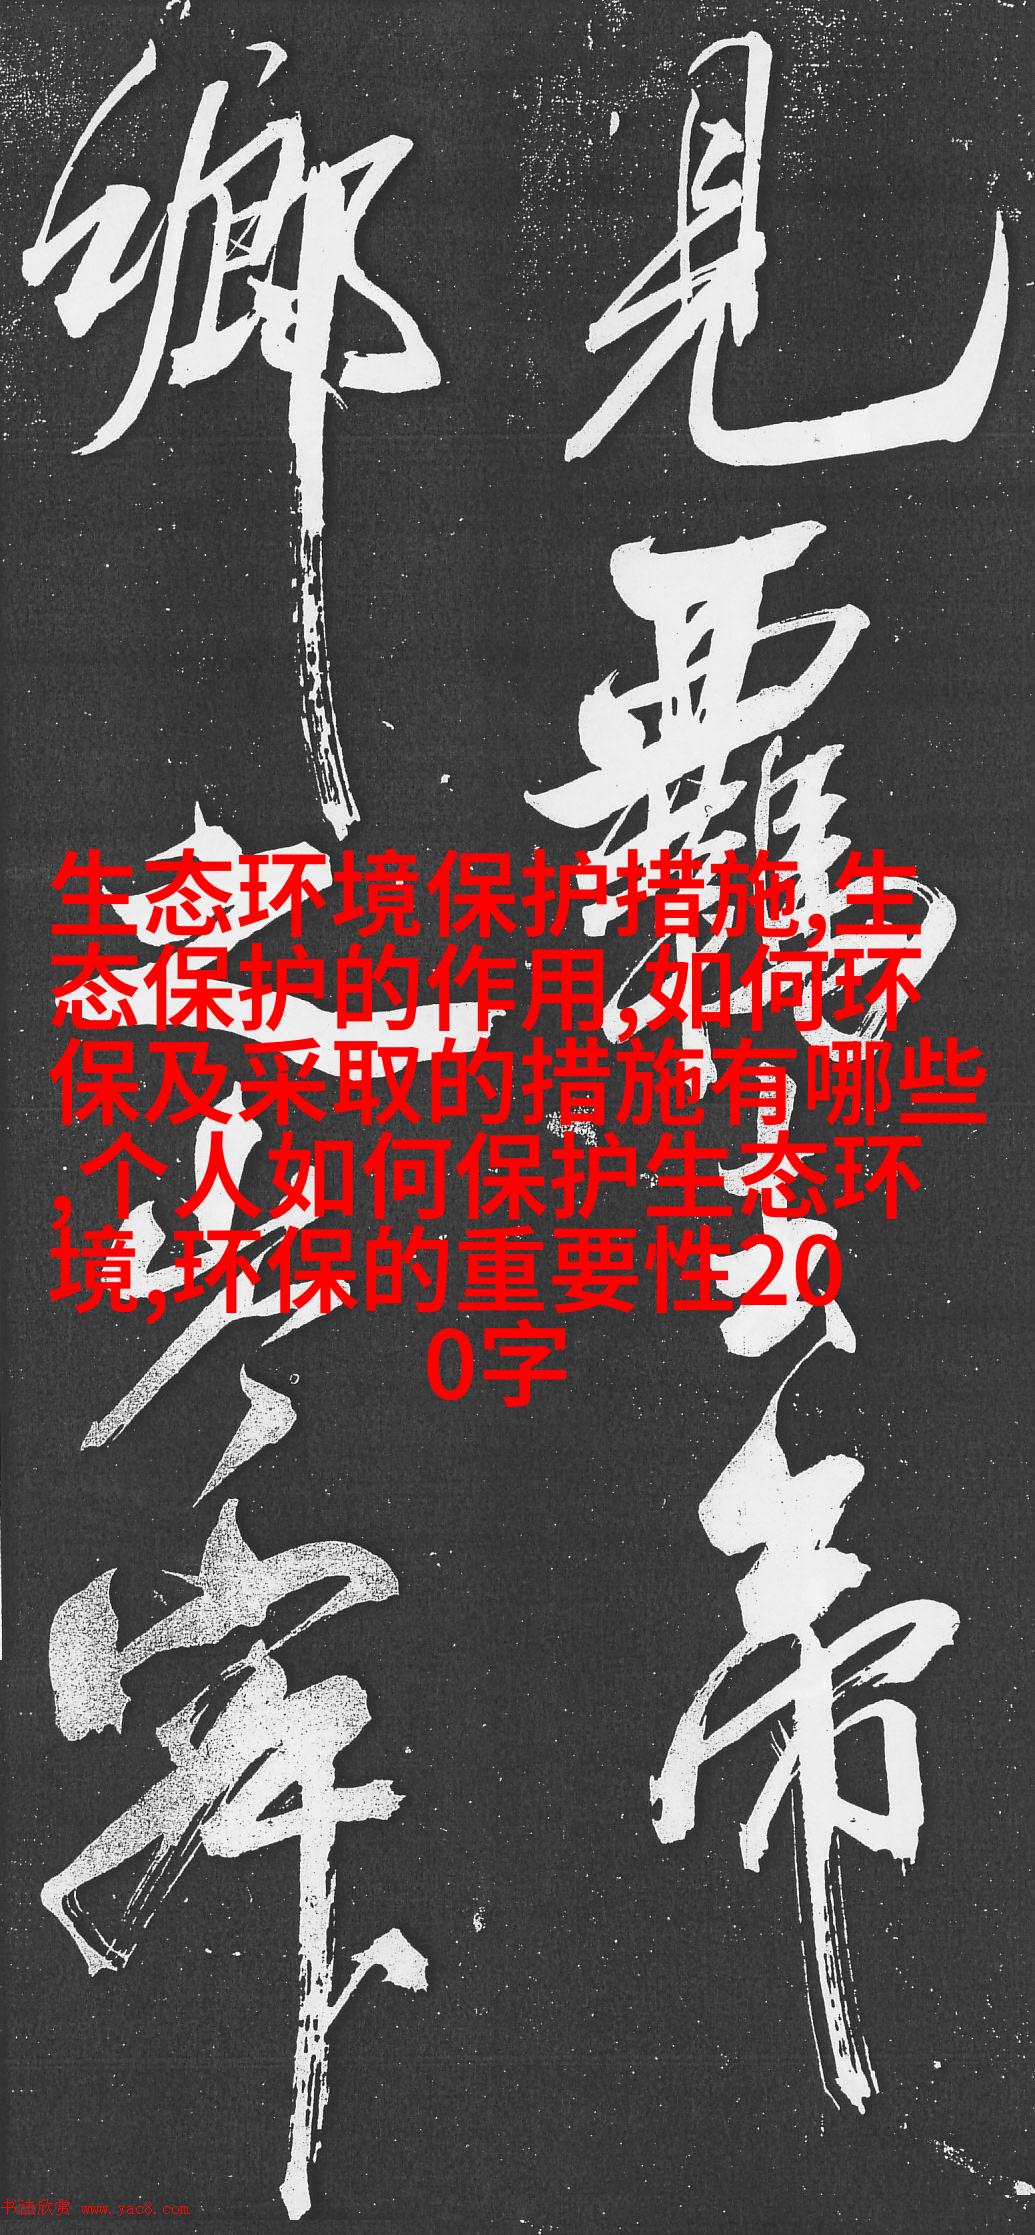 見羈去帝
鄉之
生态环境保护措施,生
态保护的作用,如何环
保及采取的措施有哪些
,个人如何保护生态环
境,环保的重要性20
0字
书法欣赏 www.yac8.com